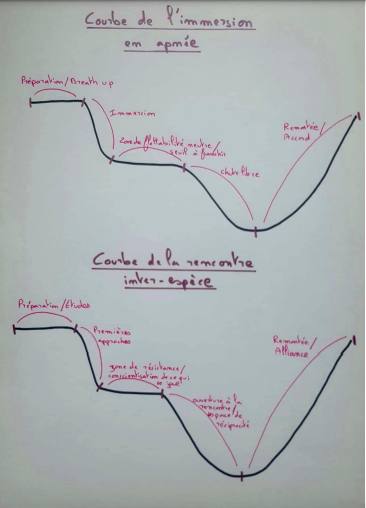 Courbe de l'immersion
en apnée
Préparation/Breath up
Immersion
Zone de flottabilité neutre/
seuil à franchir
chute libre
Remontée/
Accord
Courbe de la rencontre
inter-espèce
Préparation/Etudes
Premières
approches
zone de résistance/
conscientisation de ce qui
se joue
ouverture à la
rencontre/
espace de
réciprocité
Remontée/
Alliance